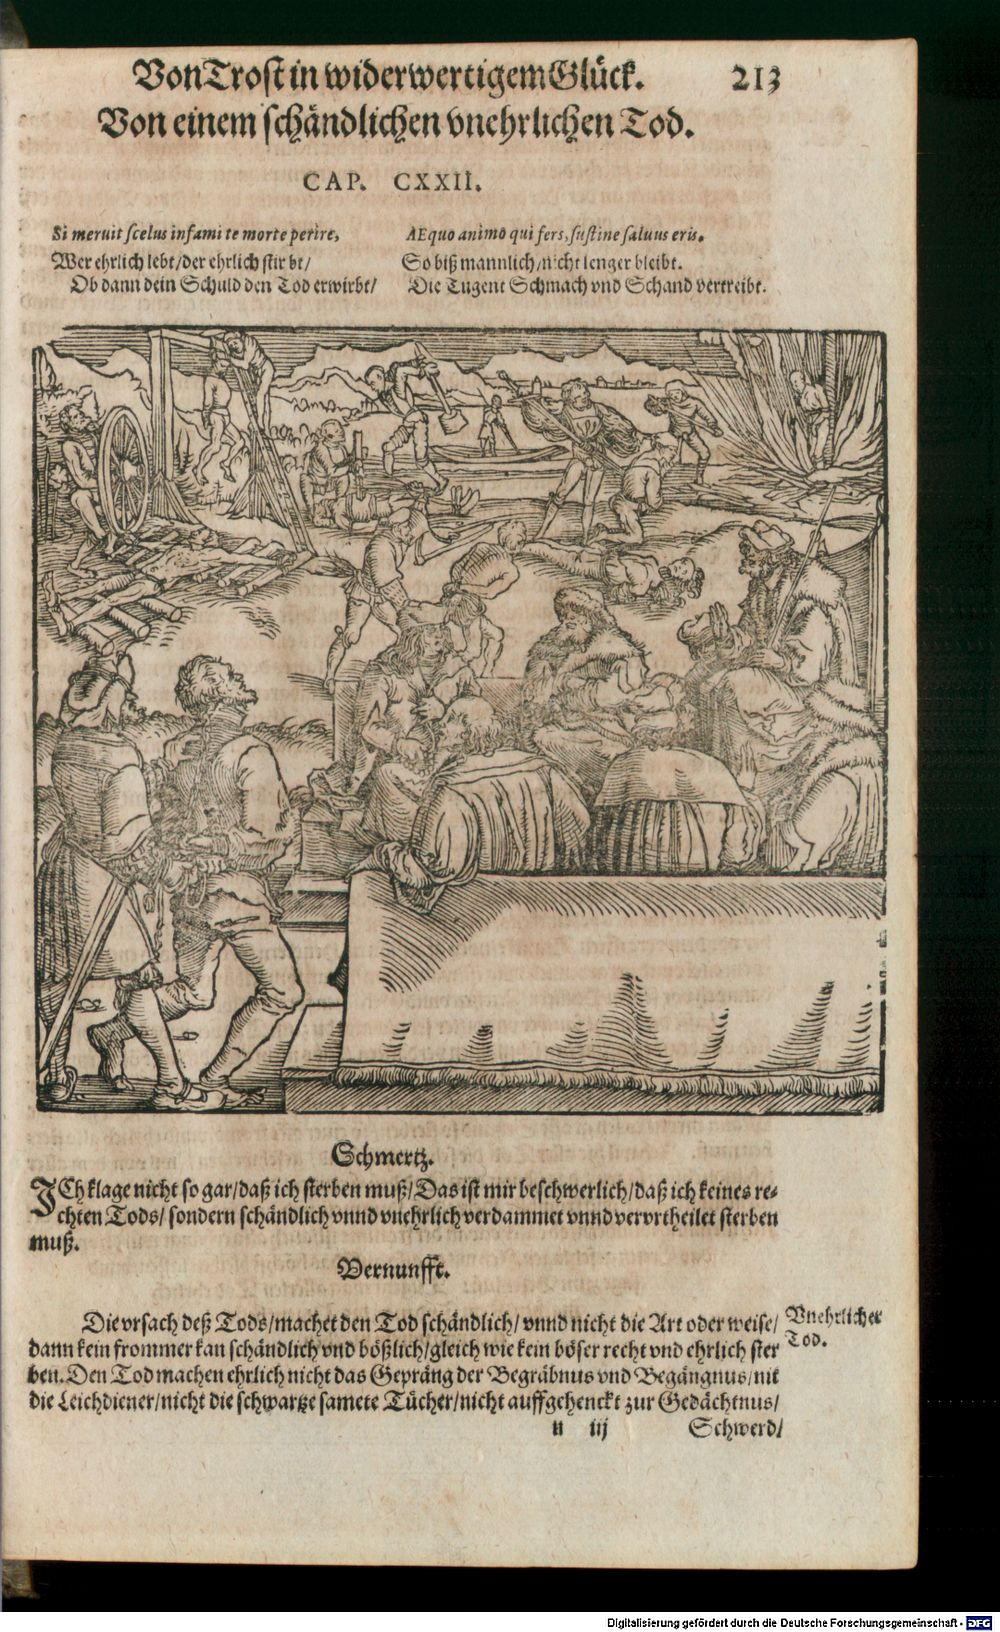 Von Trost in widerwertigem Glück. 213
Von einem schändlichen vnehrlichen Tod.
CAP. CXXII.
Si meruit scelus infami te morte perire,
Wer ehrlich lebt/der ehrlich stirbt/
Ob dann dein Schuld den Tod erwirbt/
AEquo animo qui fers, sustine saluus eris.
So biß mannlich/nicht lenger bleibt.
Die Tugent Schmach vnd Schand vertreibt.
Schmertz.
ICh klage nicht so gar/daß ich sterben muß/Das ist mir beschwerlich/daß ich keines re-
chten Tods/ sondern schändlich vnnd vnehrlich verdammet vnnd vervrtheilet sterben
muß.
Vernunfft.
Die vrsach deß Tods/machet den Tod schändlich/ vnnd nicht die Art oder weise/
dann kein frommer kan schändlich vnd bößlich/gleich wie kein böser recht vnd ehrlich ster
ben. Den Tod machen ehrlich nicht das Gepräng der Begräbnus vnd Begängnus/nit
die Leichdiener/nicht die schwartze samete Tücher/nicht auffgehenckt zur Gedächtnus/
Vnehrlicher
Tod.
n iij Schwerd/
Digitalisierung gefördert durch die Deutsche Forschungsgemeinschaft - DFG